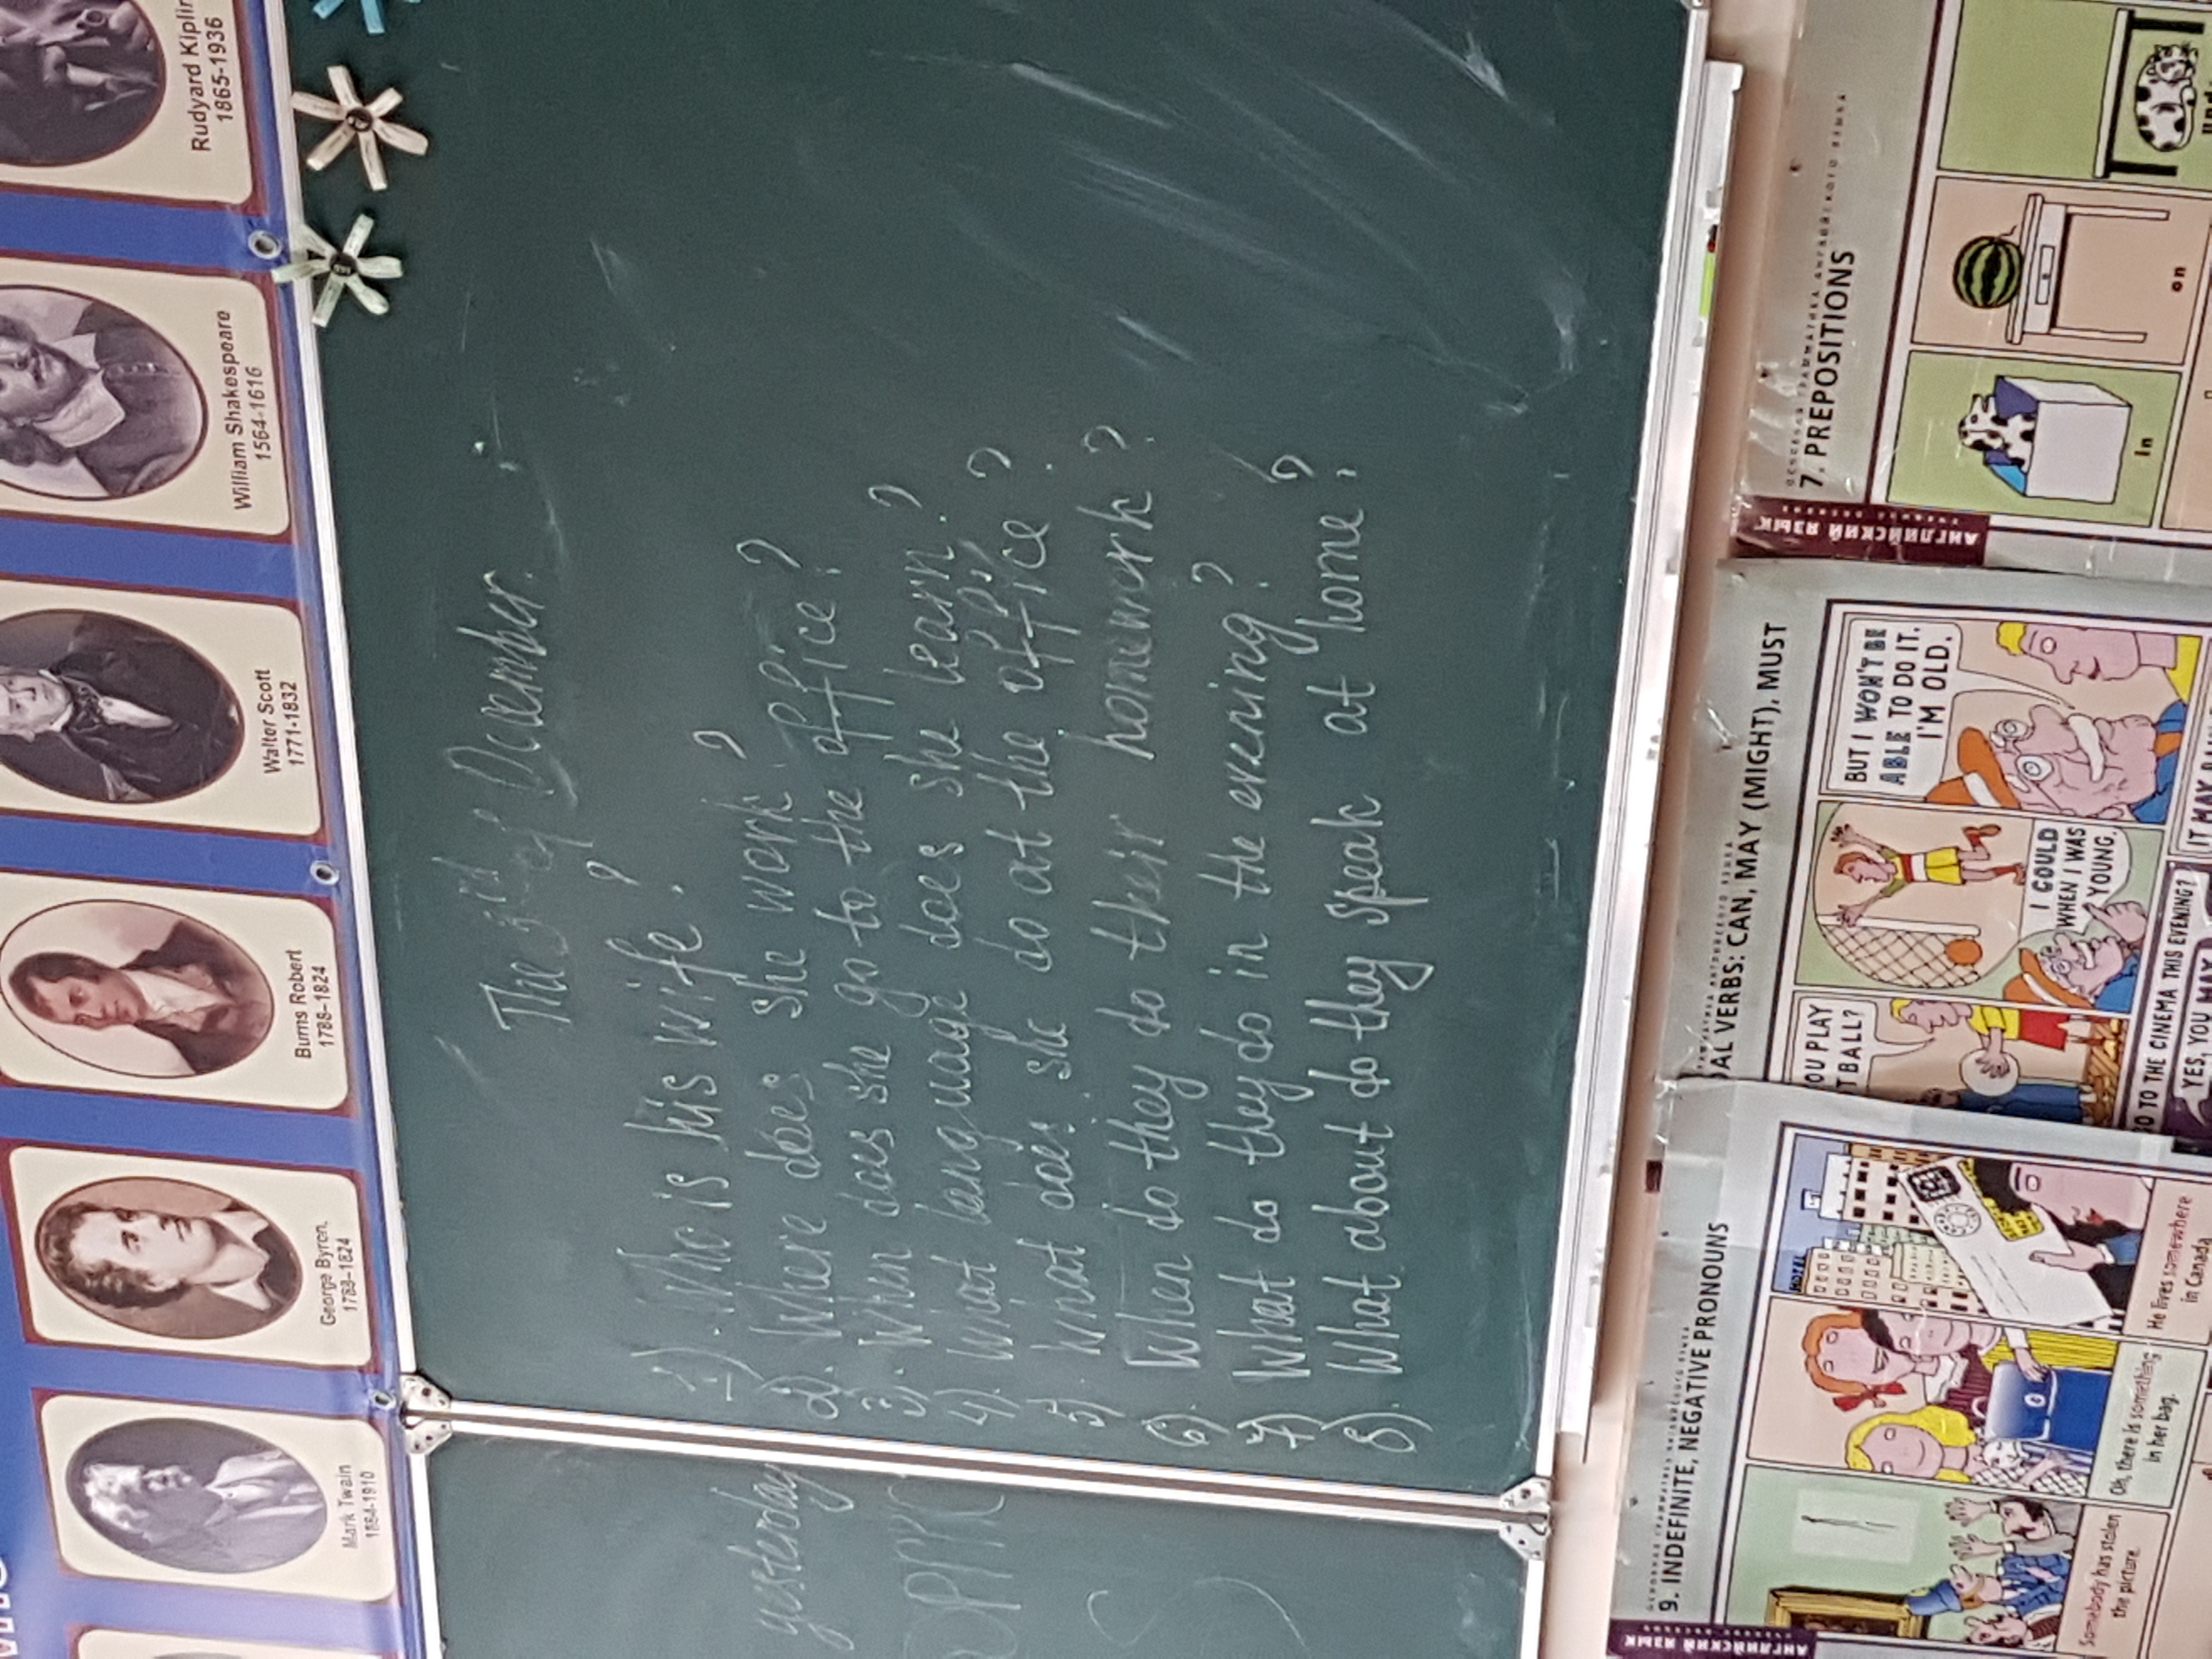 Mark Twain
1884-1910
George Byron,
1788-1824
Burns Robert
1788-1824
Walter Scott
1771-1832
William Shakespeare
1564-1616
Rudyard Kiplin
1865-1936
yesterday
The 3rd of December.
1). Who is his wife?
2). Where does she work?
3). When does she go to the office?
4). What language does she learn?
5) What does she do at the office?
6). When do they do their homework?
7) What do they do in the evening?
8). What about do they speak at home?
АНГЛИЙСКИЙ ЯЗЫК
9. INDEFINITE, NEGATIVE PRONOUNS
Somebody has stolen
the picture.
Oh, there is something
in her bag.
He lives somewhere
in Canada
HOTEL
AL VERBS: CAN, MAY (MIGHT), MUST
OU PLAY
TBALL?
I COULD
WHEN I WAS
YOUNG.
BUT I WON'T BE
ABLE TO DO IT.
I'M OLD.
GO TO THE CINEMA THIS EVENING?
YES, YOU MAY
IT MAY
АНГЛИЙСКИЙ ЯЗЫК
7. PREPOSITIONS
in
on
und